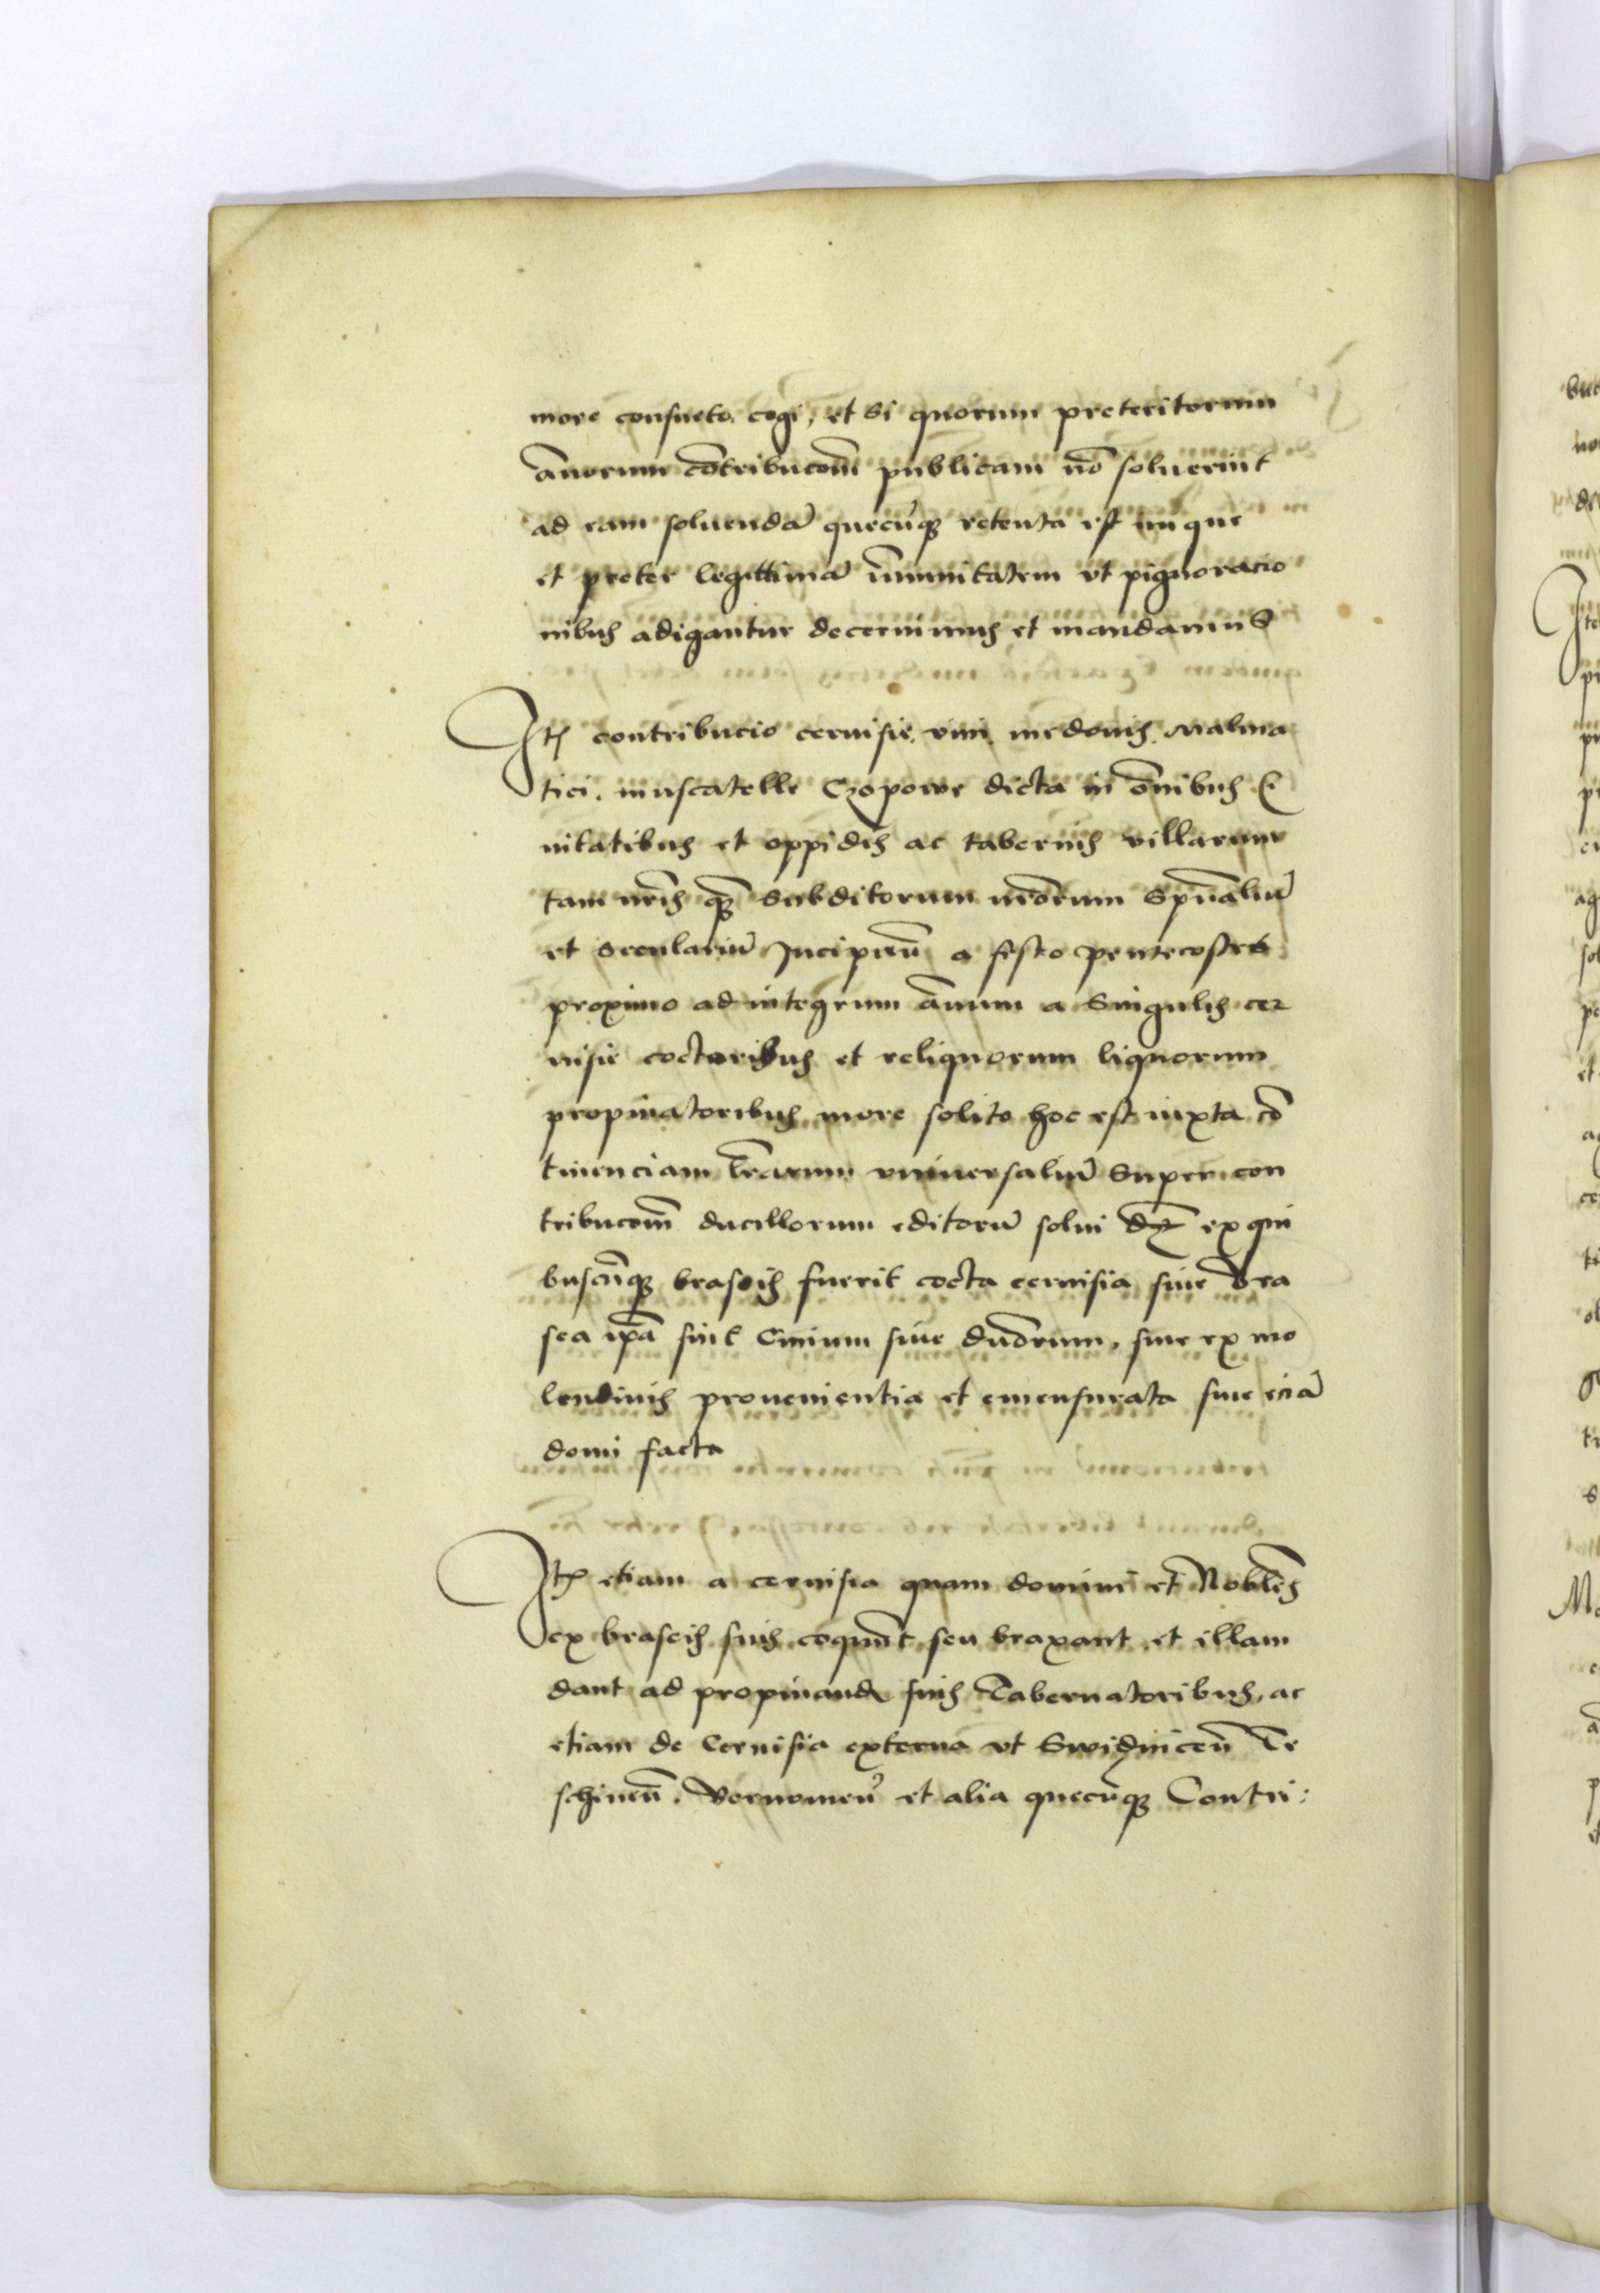 more consueto cogi, et si quorum preteritorum
ānorum cōtribucōem publicam nō soluerint
ad eam soluendā quecūqz retenta est
et preter legittimā īmunitatem vt pignoracio
nibus adigantur decernimus et mandamus
Itē contribucio ceruisie, vini, medonis, Malma
tici, muscatelle Czopowe dicta in ōnibus Ci
uitatibus et oppidis ac tabernis villarum
tam nr̄is qz̄ subditorum nr̄orum Spūaliū
et seculariū Incipieñ a festo pentecostes
proximo ad integrum ānum a singulis cer
uisie coctoribus et reliquorum liquorum
propinatoribus more solito hoc est iuxta cō
tinenciam lr̄arum vniuersaliū super con
tribucōem ducillorum editorū solui dz ex qui
buscūqz braseis fuerit cocta ceruisia siue bra
sea ip̄a sint Ciuium siue duorum, siue ex mo
lendinis prouenientia et emensurata siue eciā
domi facta
Itē etiam a ceruisia quam domini et Nobiles
ex braseis suis coquūt seu braxant et illam
dant ad propinandū suis Tabernatoribus, ac
etiam de Ceruisia externa vt Swidniceñ Te
schineñ. et alia quecūqz Contri:
buc
no
de
Ite
pi
pr
pr
ag
sol
po
et
ce
ti
ol
tr
s
Ma
p
et